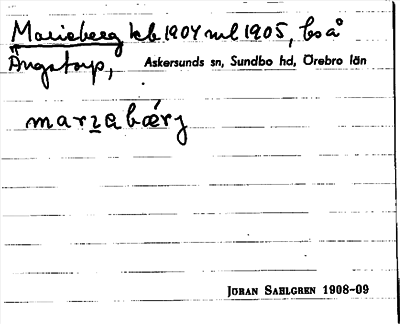 Marieberg kb 1904 ml 1905, bs å
Ängstorp, Askersunds sn, Sundbo hd, Örebro län
marzabærj
JÖRAN SAHLGREN 1908-09